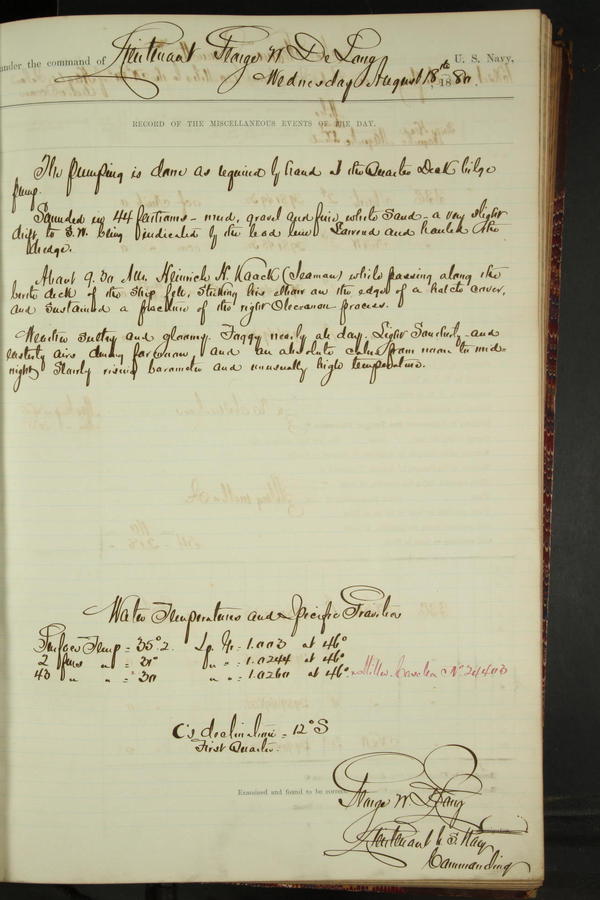 under the command of Lieutenant George W. De Long, U. S. Navy,
Wednesday August 18th 1880.
RECORD OF THE MISCELLANEOUS EVENTS OF THE DAY.
The pumping is done as required by hand at the Quarter Deck bilge
pump.
Sounded in 44 fathoms - mud, gravel and fine white Sand - a very slight
drift to S.W. being indicated by the lead line. Lowered and hauled the
dredge.
About 9.30 A.M. Heinrich H. Kaack (Seaman) while passing along the
berth deck of the ship fell, striking his elbow on the edge of a hatch cover,
and sustained a fracture of the right Olecranon process.
Weather sultry and gloomy. Foggy nearly all day. Light Southerly and
easterly airs during forenoon, and an absolute calm from noon to mid-
night. Slowly rising barometer and unusually high temperature.
Water Temperatures and Specific Gravities
Surface Temp = 35°.2. Sp. Gr. = 1.003 at 46°
2 fms " = 31° " " = 1.0244 at 46°
43 " " = 30 " " = 1.0260 at 46°. Miller Casella No 24403
C's declination = 12° S
First Quarter.
Examined and found to be correct.
George W. De Long
Lieutenant U. S. Navy
Commanding